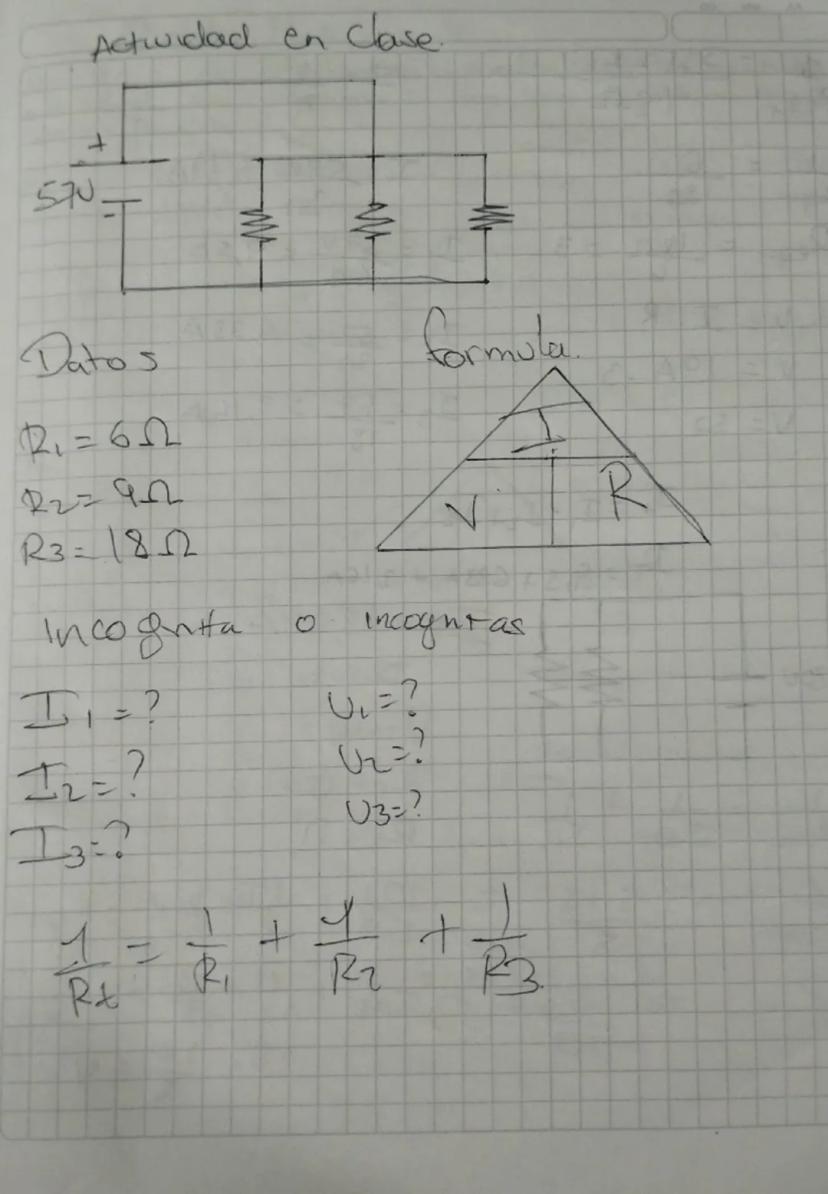 Actividad en Clase.
+
57V
-
Datos
formula.
I
V R
R1 = 6Ω
R2 = 9Ω
R3 = 18Ω
Incognita o incognitas
I1 = ?
V1 = ?
I2 = ?
V2 = ?
I3 = ?
V3 = ?
1/Rt = 1/R1 + 1/R2 + 1/R3